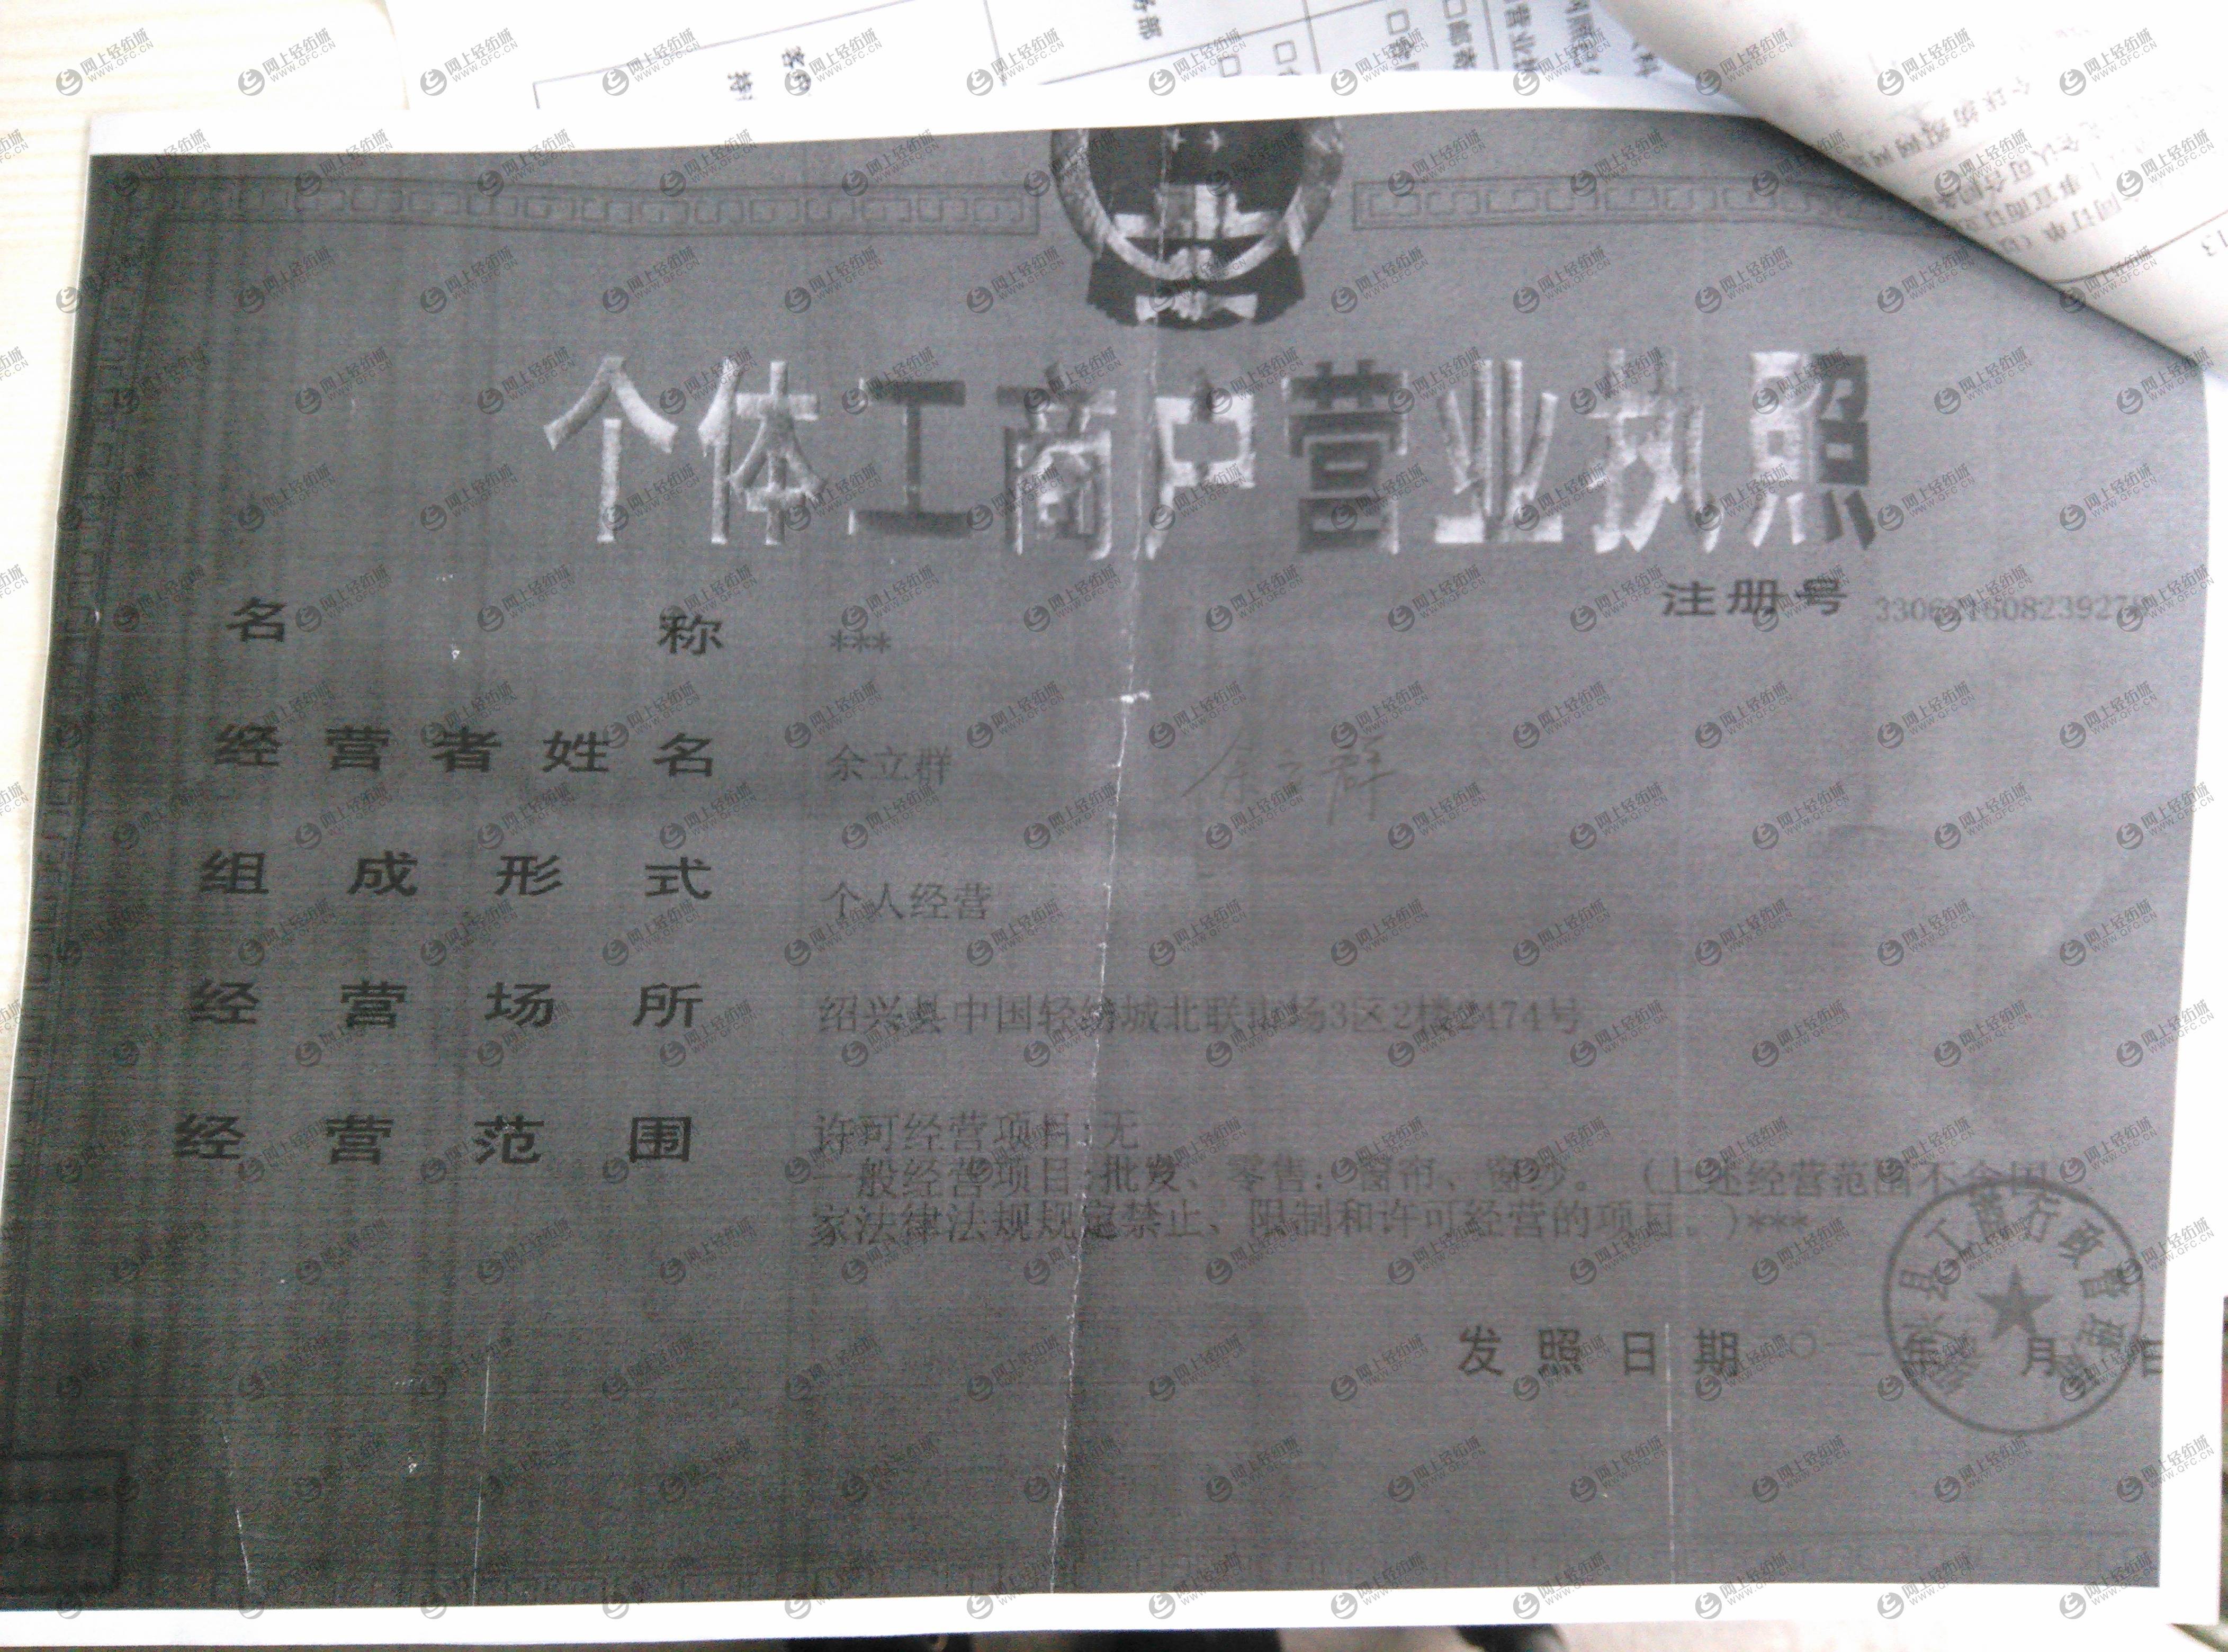 个体工商户营业执照
注册号
名称 ***
经营者姓名 余立群 余立群
组成形式 个人经营
经营场所 绍兴县中国轻纺城北联市场3区2楼2474号
经营范围 许可经营项目:无
一般经营项目:批发、零售:窗帘、窗纱。(上述经营范围不含国
家法律法规规定禁止、限制和许可经营的项目。)***
绍兴县工商行政管理局
发照日期 月 日
网上轻纺城
WWW.QFC.CN